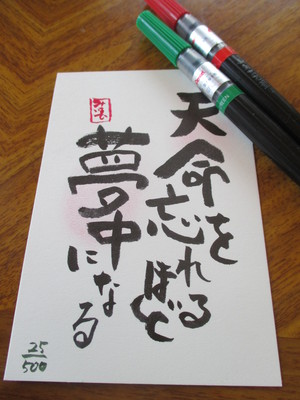 天命を
忘れる
ほど
夢中
になる
25
500